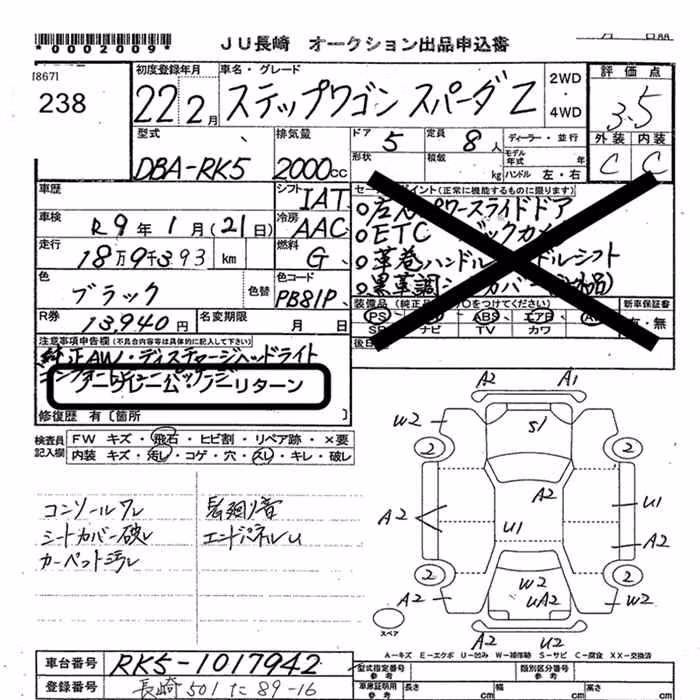 *0002009*
JU長崎 オークション出品申込書
[867]
238
初度登録年月
22 2月
車名・グレード
ステップワゴン スパーダ Z
2WD
・
4WD
評価点
3.5
外装 内装
C C
型式
DBA-RK5
排気量
2000cc
ドア 5
定員 8人
形状
積載 kg
ディーラー・並行
モデル年式 年
ハンドル 左・右
車歴
シフト IAT
車検 R9年1月(21日)
冷房 AAC
走行 18万9千393 km
燃料 G
色 ブラック
色替
色コード PB81P
R券 13,940円
名変期限 月 日
セールスポイント(正常に機能するものに限ります)
パワースライドドア
ETC
革巻ハンドル
黒革調
新車保証書
有・無
PS ABS エアB
ナビ TV カワ
注意事項申告欄(不具合内容等は具体的に記入して下さい)
純正AW・ディスチャージヘッドライト
リターン
修復歴 有[箇所 ]
検査員記入欄
FW キズ・飛石・ヒビ割・リペア跡・×要
内装 キズ・汚レ・コゲ・穴・スレ・キレ・破レ
コンソールワレ
シートカバー破レ
カーペット汚レ
エンドパネルU
A2 A1
W2 S1
2 2
A2 A2 U1
U1 A2
2 2
A2 W2 UA2 W2
A2 U2
スペア
A－キズ E－エクボ U－凹み W－補修跡 S－サビ C－腐食 XX－交換済
車台番号 RK5-1017942
登録番号 長崎 501 た 89-16
型式指定番号
参考
類別区分番号
参考
車庫証明用
参考
長さ cm
幅 cm
高さ cm